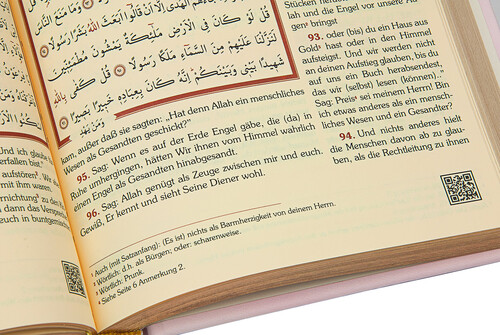 وَمَا مَنَعَ النَّاسَ
إِلَّا أَن قَالُوا أَبَعَثَ اللَّهُ بَشَرًا رَّسُولًا
قُل لَّوْ كَانَ فِي الْأَرْضِ مَلَٰئِكَةٌ يَمْشُونَ مُطْمَئِنِّينَ
لَنَزَّلْنَا عَلَيْهِم مِّنَ السَّمَاءِ مَلَكًا رَّسُولًا قُلْ كَفَىٰ بِاللَّهِ
شَهِيدًا بَيْنِي وَبَيْنَكُمْ إِنَّهُ كَانَ بِعِبَادِهِ خَبِيرًا بَصِيرًا
وَمَن يَهْدِ
Stücken herab
lah und die Engel vor unsere Au-
gen³ bringst
93. oder (bis) du ein Haus aus
Gold³ hast oder in den Himmel
aufsteigst. Und wir werden nicht
an deinen Aufstieg glauben, bis du
auf uns ein Buch herabsendest,
das wir (selbst) lesen (können)."
Sag: Preis sei meinem Herrn! Bin
ich etwas anderes als ein mensch-
liches Wesen und ein Gesandter?
94. Und nichts anderes hielt
die Menschen davon ab zu glau-
ben, als die Rechtleitung zu ihnen
kam, außer daß sie sagten: „Hat denn Allah ein menschliches
Wesen als Gesandten geschickt?"
95. Sag: Wenn es auf der Erde Engel gäbe, die (da) in
Ruhe umhergingen, hätten Wir ihnen vom Himmel wahrlich
einen Engel als Gesandten hinabgesandt.
96. Sag: Allah genügt als Zeuge zwischen mir und euch.
Gewiß, Er kennt und sieht Seine Diener wohl.
¹ Auch (mit Satzanfang): (Es ist) nichts als Barmherzigkeit von deinem Herrn.
² Wörtlich: d.h. als Bürgen; oder: scharenweise.
³ Wörtlich: Prunk.
⁴ Siehe Seite 6 Anmerkung 2.